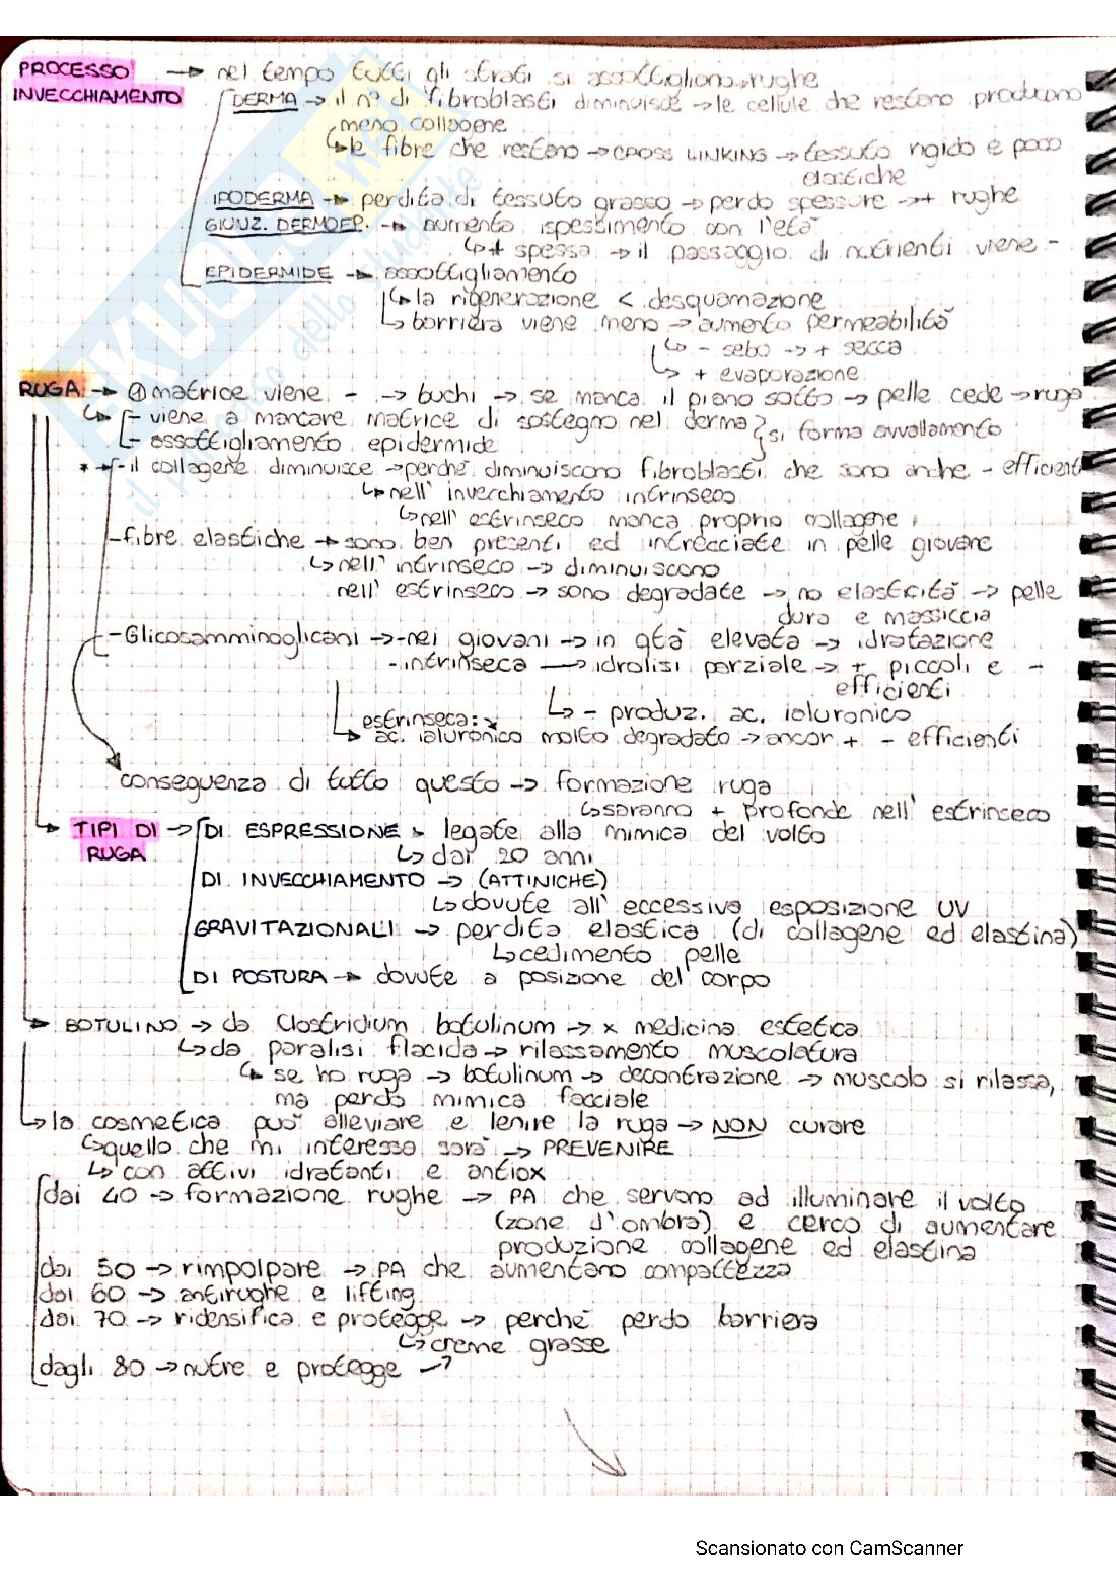 PROCESSO INVECCHIAMENTO → nel tempo tutti gli strati si assottigliano → rughe
DERMA → il n° di fibroblasti diminuisce → le cellule che restano producono
meno collagene
↳ le fibre che restano → CROSS LINKING → tessuto rigido e poco
elastiche
IPODERMA → perdita di tessuto grasso → perdo spessure → + rughe
GIUNZ. DERMOEP. → aumenta ispessimento con l'età
↳ + spessa → il passaggio di nutrienti viene -
EPIDERMIDE → assottigliamento
↳ la rigenerazione < desquamazione
↳ barriera viene meno → aumento permeabilità
↳ - sebo → + secca
↳ + evaporazione
RUGA → ① matrice viene - → buchi → se manca il piano sotto → pelle cede → ruga
↳ - viene a mancare matrice di sostegno nel derma } si forma avvallamento
- assottigliamento epidermide
* → - il collagene diminuisce → perché diminuiscono fibroblasti che sono anche - efficienti
↳ nell' invecchiamento intrinseco
↳ nell' estrinseco manca proprio collagene
- fibre elastiche → sono ben presenti ed intrecciate in pelle giovane
↳ nell' intrinseco → diminuiscono
nell' estrinseco → sono degradate → no elasticità → pelle
dura e massiccia
- Glicosamminoglicani → - nei giovani → in qtà elevata → idratazione
- intrinseca → idrolisi parziale → + piccoli e -
efficienti
↳ - produz. ac. ialuronico
estrinseca:
↳ ac. ialuronico molto degradato → ancor + - efficienti
conseguenza di tutto questo → formazione ruga
↳ saranno + profonde nell' estrinseco
TIPI DI RUGA → DI ESPRESSIONE → legate alla mimica del volto
↳ dai 20 anni
DI INVECCHIAMENTO → (ATTINICHE)
↳ dovute all' eccessiva esposizione UV
GRAVITAZIONALI → perdita elastica (di collagene ed elastina)
↳ cedimento pelle
DI POSTURA → dovute a posizione del corpo
BOTULINO → da Clostridium botulinum → x medicina estetica
↳ da paralisi flacida → rilassamento muscolatura
↳ se ho ruga → botulinum → decontrazione → muscolo si rilassa,
ma perdo mimica facciale
↳ la cosmetica può alleviare e lenire la ruga → NON curare
↳ quello che mi interessa sarà → PREVENIRE
↳ con attivi idratanti e antiox
dai 40 → formazione rughe → PA che servono ad illuminare il volto
(zone d'ombra) e cerco di aumentare
produzione collagene ed elastina
dai 50 → rimpolpare → PA che aumentano compattezza
dai 60 → antirughe e lifting
dai 70 → ridensifica e protegge → perché perdo barriera
↳ creme grasse
dagli 80 → nutre e protegge
Scansionato con CamScanner